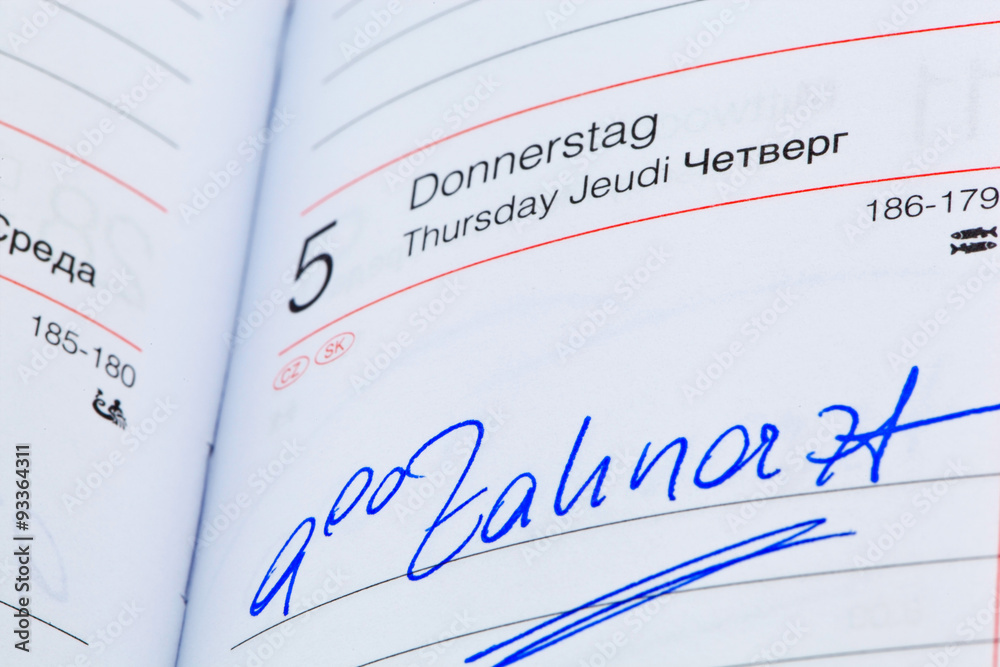 Среда
185-180
5
Donnerstag
Thursday Jeudi Четверг
186-179
CZ SK
9⁰⁰ Zahnarzt
Adobe Stock | #93364311